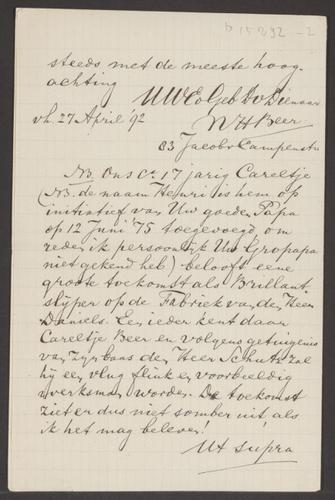 b 15292 - 2
steeds met de meeste hoog-
achting
UWEd Geb Dv Dienaar
vh. 27 April '92
WH Beer
83 Jacob v Campenstr
NB. Ons Ca 17 jarig Careltje
(NB. de naam Henri is hem op
initiatief van Uw goeden Papa
op 12 Juni '75 toegevoegd, om
reden ik persoonlijk Uw Gropapa
niet gekend heb) belooft eene
groote toekomst als Brillant
slyper op de Fabriek van den Heer
Daniels. Een ieder kent daar
Careltje Beer en volgens getuigenis
van zyn baas den Heer Schutz zal
hij een vlug flink en voorbeeldig
werksman worden. De toekomst
ziet er dus niet somber uit, als
ik het mag beleven!
Ut supra